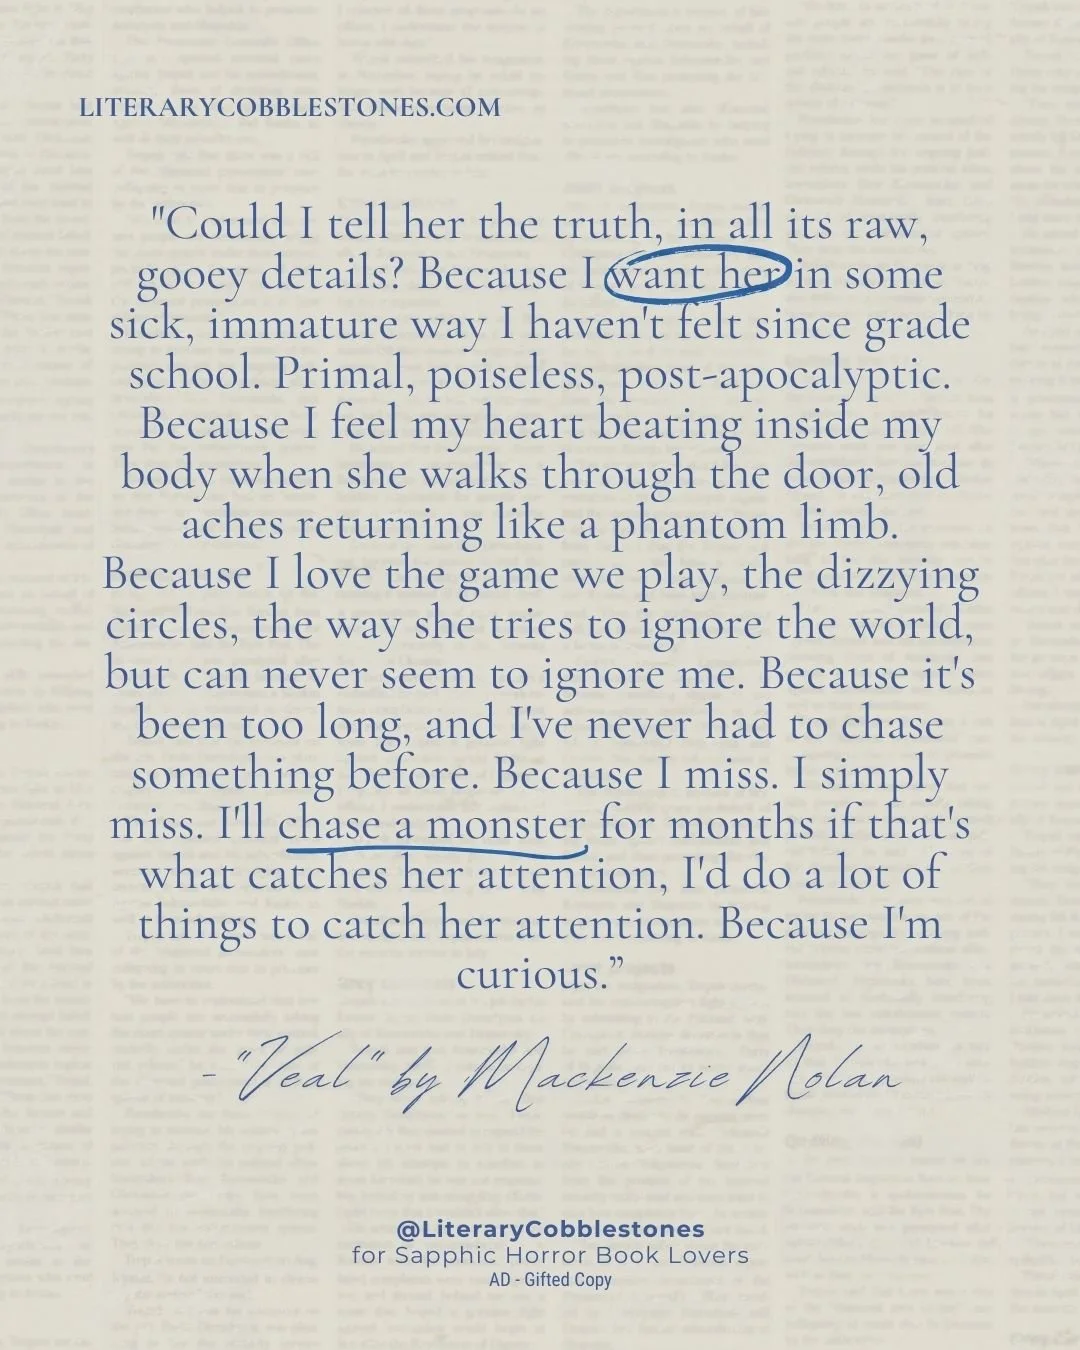 LITERARYCOBBLESTONES.COM
"Could I tell her the truth, in all its raw,
gooey details? Because I want her in some
sick, immature way I haven't felt since grade
school. Primal, poiseless, post-apocalyptic.
Because I feel my heart beating inside my
body when she walks through the door, old
aches returning like a phantom limb.
Because I love the game we play, the dizzying
circles, the way she tries to ignore the world,
but can never seem to ignore me. Because it's
been too long, and I've never had to chase
something before. Because I miss. I simply
miss. I'll chase a monster for months if that's
what catches her attention, I'd do a lot of
things to catch her attention. Because I'm
curious.”
- "Veal" by Mackenzie Nolan
@LiteraryCobblestones
for Sapphic Horror Book Lovers
AD - Gifted Copy